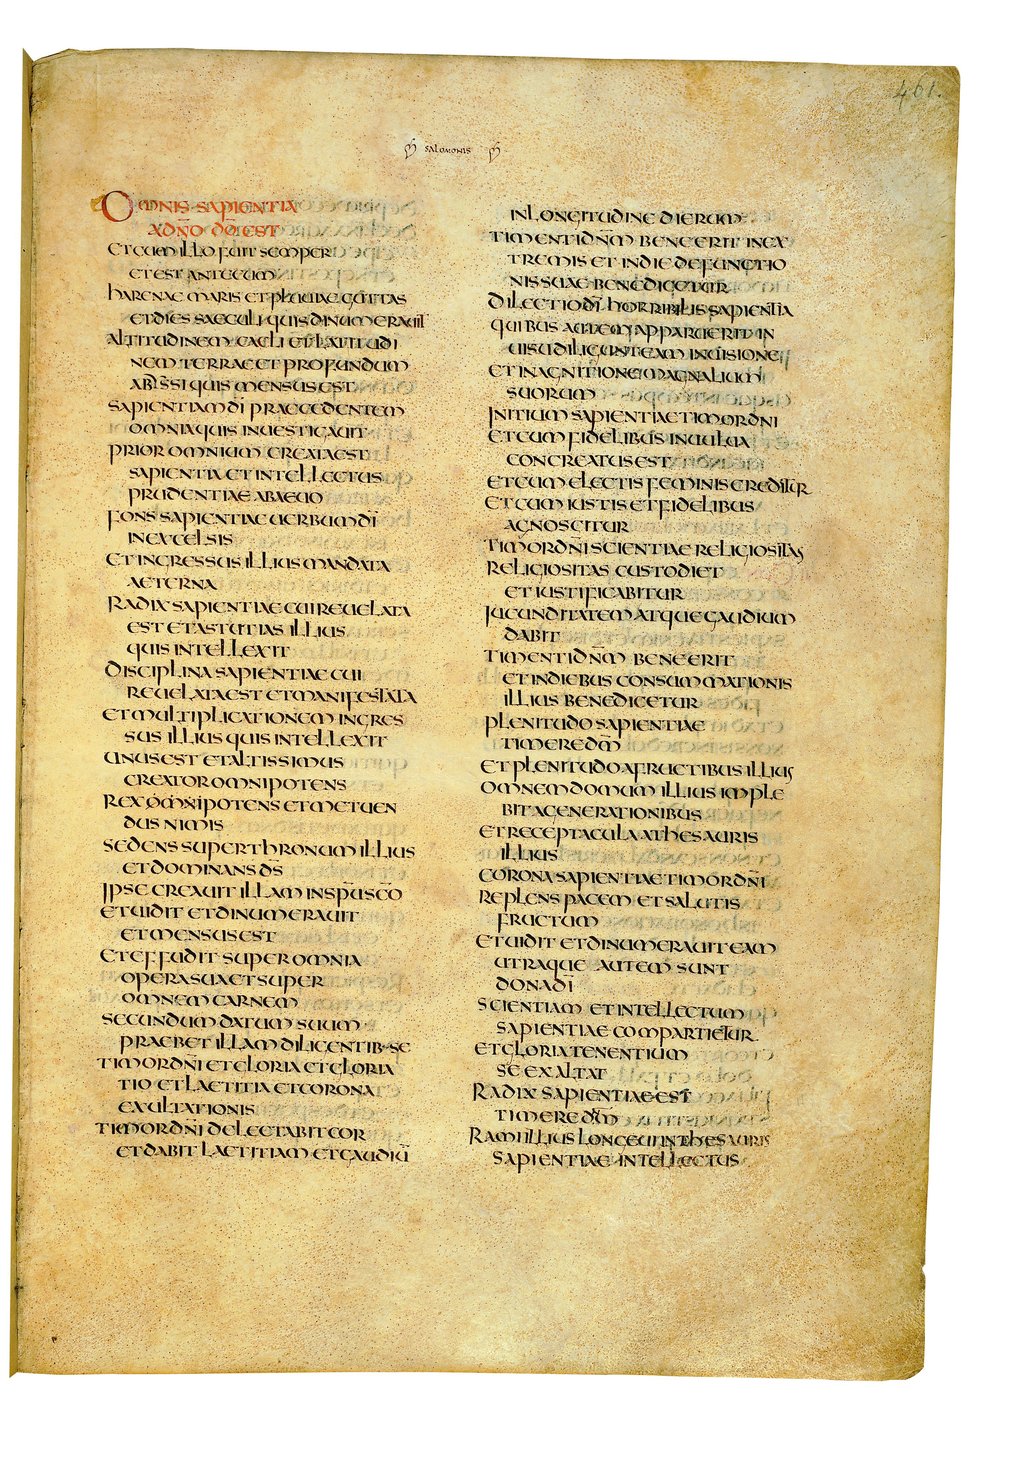 461.
SALOMONIS
OMNIS SAPIENTIA
A DN̄O DŌ EST
ET CUM ILLO FUIT SEMPER
ET EST ANTE CUM
HARENAE MARIS ET PLUUIAE GUTTAS
ET DIES SAECULI QUIS DINUMERAUIT
ALTITUDINEM CAELI ET LATITUDI
NEM TERRAE ET PROFUNDUM
ABISSI QUIS MENSUS EST
SAPIENTIAM DĪ PRAECEDENTEM
OMNIA QUIS INUESTIGAUIT
PRIOR OMNIUM CREATA EST
SAPIENTIA ET INTELLECTUS
PRUDENTIAE AB AEUO
FONS SAPIENTIAE UERBUM DĪ
IN EXCELSIS
ET INGRESSUS ILLIUS MANDATA
AETERNA
RADIX SAPIENTIAE CUI REUELATA
EST ET ASTUTIAS ILLIUS
QUIS INTELLEXIT
DISCIPLINA SAPIENTIAE CUI
REUELATA EST ET MANIFESTATA
ET MULTIPLICATIONEM INGRES
SUS ILLIUS QUIS INTELLEXIT
UNUS EST ET ALTISSIMUS
CREATOR OMNIPOTENS
REX OMNIPOTENS ET METUEN
DUS NIMIS
SEDENS SUPER THRONUM ILLIUS
ET DOMINANS DS̄
IPSE CREAUIT ILLAM IN SPŪ SCŌ
ET UIDIT ET DINUMERAUIT
ET MENSUS EST
ET EFFUDIT SUPER OMNIA
OPERA SUA ET SUPER
OMNEM CARNEM
SECUNDUM DATUM SUUM
PRAEBET ILLAM DILIGENTIB· SE
TIMOR DN̄I ET GLORIA ET GLORIA
TIO ET LAETITIA ET CORONA
EXULTATIONIS
TIMOR DN̄I DELECTABIT COR
ET DABIT LAETITIAM ET GAUDIŪ
IN LONGITUDINE DIERUM
TIMENTI DN̄M BENE ERIT IN EX
TREMIS ET IN DIE DEFUNCTIO
NIS SUAE BENEDICETUR
DILECTIO DĪ HORRIBILIS SAPIENTIA
QUIBUS AUTEM APPARUERIT IN
UISU DILIGUNT EAM IN UISIONE
ET IN AGNITIONE MAGNALIUM
SUORUM
INITIUM SAPIENTIAE TIMOR DN̄I
ET CUM FIDELIBUS IN UULUA
CONCREATUS EST
ET CUM ELECTIS FEMINIS CREDITUR
ET CUM IUSTIS ET FIDELIBUS
AGNOSCITUR
TIMOR DN̄I SCIENTIAE RELIGIOSITAS
RELIGIOSITAS CUSTODIET
ET IUSTIFICABITUR
IUCUNDITATEM ATQUE GAUDIUM
DABIT
TIMENTI DN̄M BENE ERIT
ET IN DIEBUS CONSUMMATIONIS
ILLIUS BENEDICETUR
PLENITUDO SAPIENTIAE
TIMERE DM̄
ET PLENITUDO A FRUCTIBUS ILLIUS
OMNEM DOMUM ILLIUS IMPLE
BIT A GENERATIONIBUS
ET RECEPTACULA A THESAURIS
ILLIUS
CORONA SAPIENTIAE TIMOR DN̄I
REPLENS PACEM ET SALUTIS
FRUCTUM
ET UIDIT ET DINUMERAUIT EAM
UTRAQUE AUTEM SUNT
DONA DĪ
SCIENTIAM ET INTELLECTUM
SAPIENTIAE COMPARTIETUR
ET GLORIA TENENTIUM
SE EXALTAT
RADIX SAPIENTIAE EST
TIMERE DM̄
RAMI ILLIUS LONGEUI IN THESAURIS
SAPIENTIAE INTELLECTUS